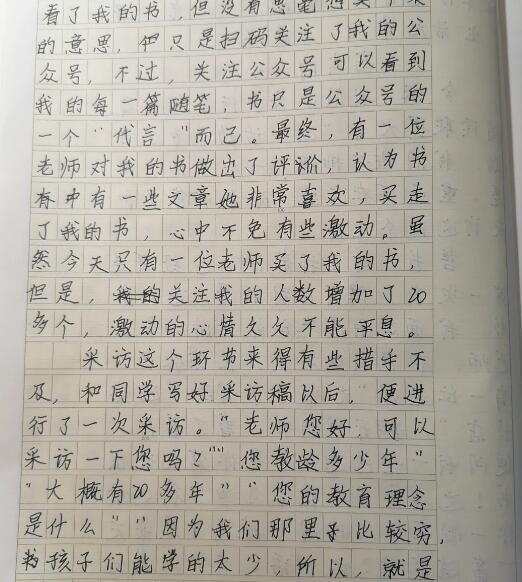 看了我的书，但没有
的意思，他只是扫码关注了我的公
众号，不过，关注公众号可以看到
我的每一篇随笔，书只是公众号的
一个“代言”而已。最终，有一位
老师对我的书做出了评价，认为书
中有一些文章她非常喜欢，买走
了我的书，心中不免有些激动。虽
然今天只有一位老师买了我的书，
但是，关注我的人数增加了20
多个，激动的心情久久不能平息。
采访这个环节来得有些措手不
及，和同学写好采访稿以后，便进
行了一次采访。“老师您好，可以
采访一下您吗？”“您教龄多少年”
“大概有20多年”“您的教育理念
是什么”“因为我们那里比较穷，
孩子们能学的太少，所以，就是